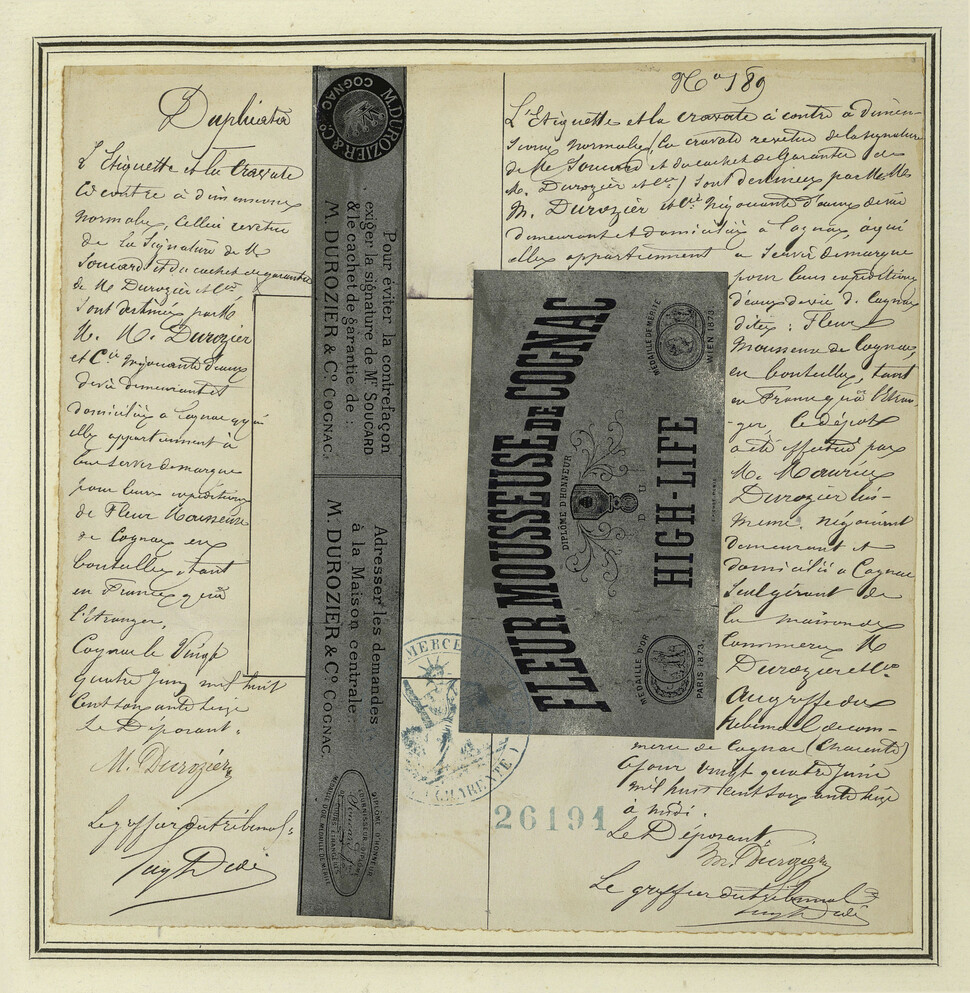 Duplicata
L'Etiquette et la Cravate
Ci contre à dimensions
normales, celle ci revêtue
de la Signature de M
Soucard et du cachet de garantie
de M Durozier et Cie
Sont destinées par M
M. M. Durozier
et Cie négociants d'eaux
de vie demeurant et
domiciliés à Cognac
elles appartiennent à
leur servir de marque
pour leurs expéditions
de Fleur Mousseuse
de Cognac en
bouteilles, tant
en France qu'à
l'étranger.
Cognac le Vingt
quatre Juin mil huit
Cent soixante seize
Le Déposant.
M. Durozier
Le greffier du tribunal
M. DUROZIER & Co.
COGNAC
Pour éviter la contrefaçon
exiger la signature de Mr SOUCARD
& le cachet de garantie de :
M. DUROZIER & Co COGNAC.
Adresser les demandes
à la Maison centrale.
M. DUROZIER & Co COGNAC.
DIPLÔME D'HONNEUR
No 189
L'Etiquette et la cravate ci contre à dimen-
sions normales, (la cravate revêtue de la signature
de Mr Soucard et du cachet de Garantie de
M. Durozier et Cie) sont destinées par M. M.
M. Durozier et Cie Négociants d'eaux de vie
demeurant et domiciliés à Cognac, à qui
elles appartiennent a servir de marque
pour leurs expéditions
d'eaux de vie de Cognac
dites : Fleur
Mousseuse de Cognac,
en bouteilles, tant
en France qu'à l'étran-
ger, le dépôt
a été effectué par
M. Maurice
Durozier lui-
même, négociant
demeurant et
domicilié à Cognac
Seul gérant de
la maison de
Commerce M
Durozier et Cie
Au greffe du
tribunal de com-
merce de Cognac (Charente)
ce jour vingt quatre Juin
mil huit cent soixante seize
à midi.
Le Déposant
M. Durozier
Le greffier du tribunal
FLEUR MOUSSEUSE DE COGNAC
DIPLÔME D'HONNEUR
DU
HIGH-LIFE
MÉDAILLE DE MÉRITE
WIEN 1873.
MÉDAILLE D'OR
PARIS 1873.
26191